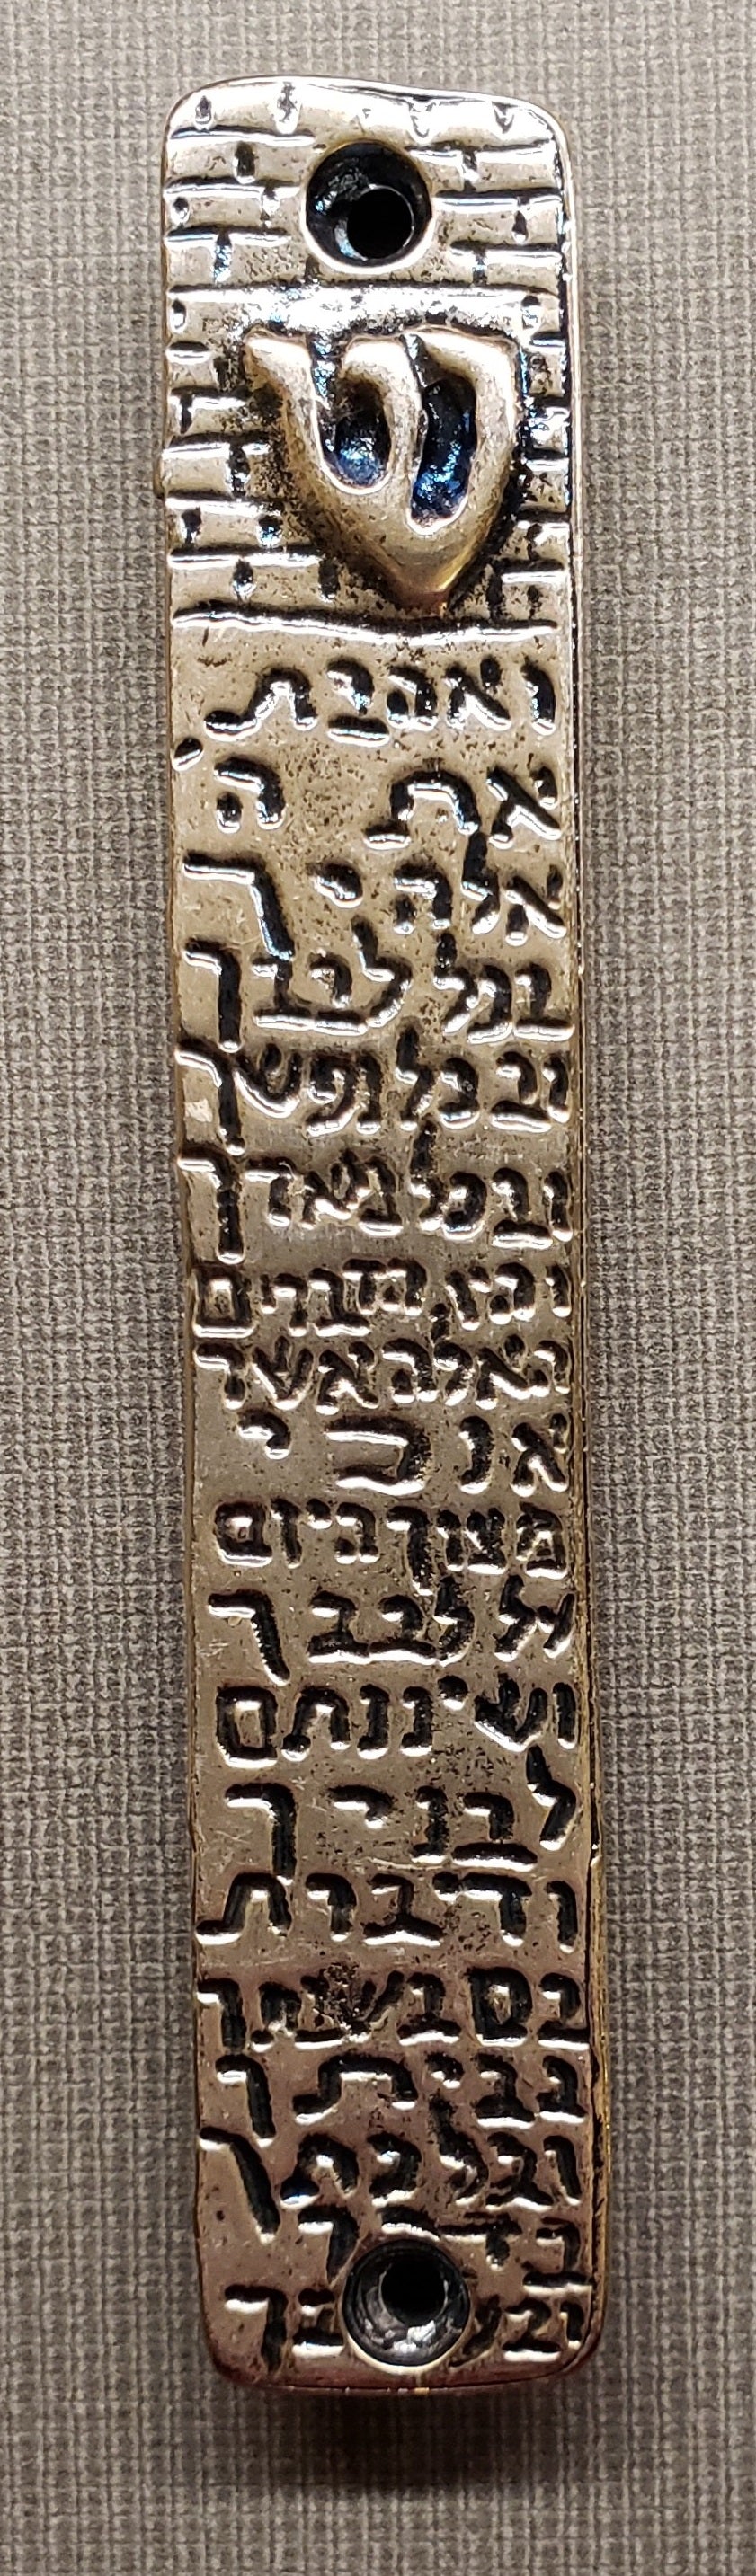 ש
ואהבת
את ה'
אלהיך
בכל לבבך
ובכל נפשך
ובכל מאדך
והיו הדברים
האלה אשר
אנכי
מצוך היום
על לבבך
ושיננתם
לבניך
ודיברת
בם בשבתך
בביתך
ובלכתך
בדרך